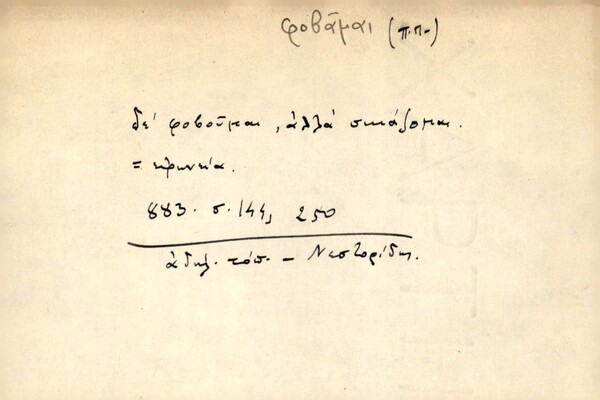 φοβᾶμαι (π.π.)
δε' φοβοῦμαι, ἀλλά σκιάζομαι.
= εἰρωνεία.
883. σ. 144, 250
ἀδήλ. τόπ. – Νεστορίδης.